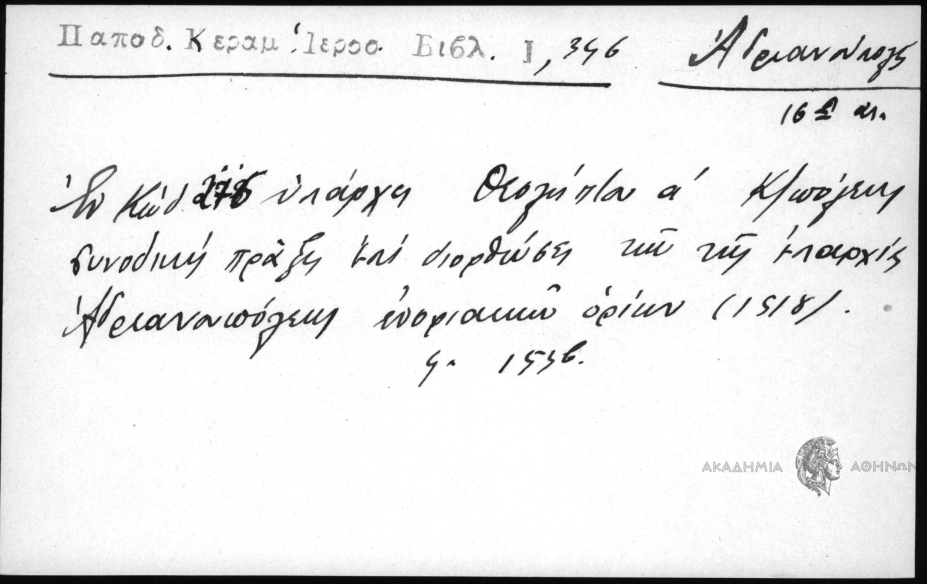 Παποδ. Κεραμ. Ἱεροσ. Βιβλ. I, 346
Ἀδριανούπολις
16 αι.
Ἐν Κώδ. 276 ὑπάρχει Θεολήπτου α΄ Κ/πόλεως
συνοδική πρᾶξις ἐπί διορθώσει τῶν τῆς ἐπαρχίας
Ἀδριανουπόλεως ἐνοριακῶν ὁρίων (1518).
ΑΚΑΔΗΜΙΑ ΑΘΗΝΩΝ